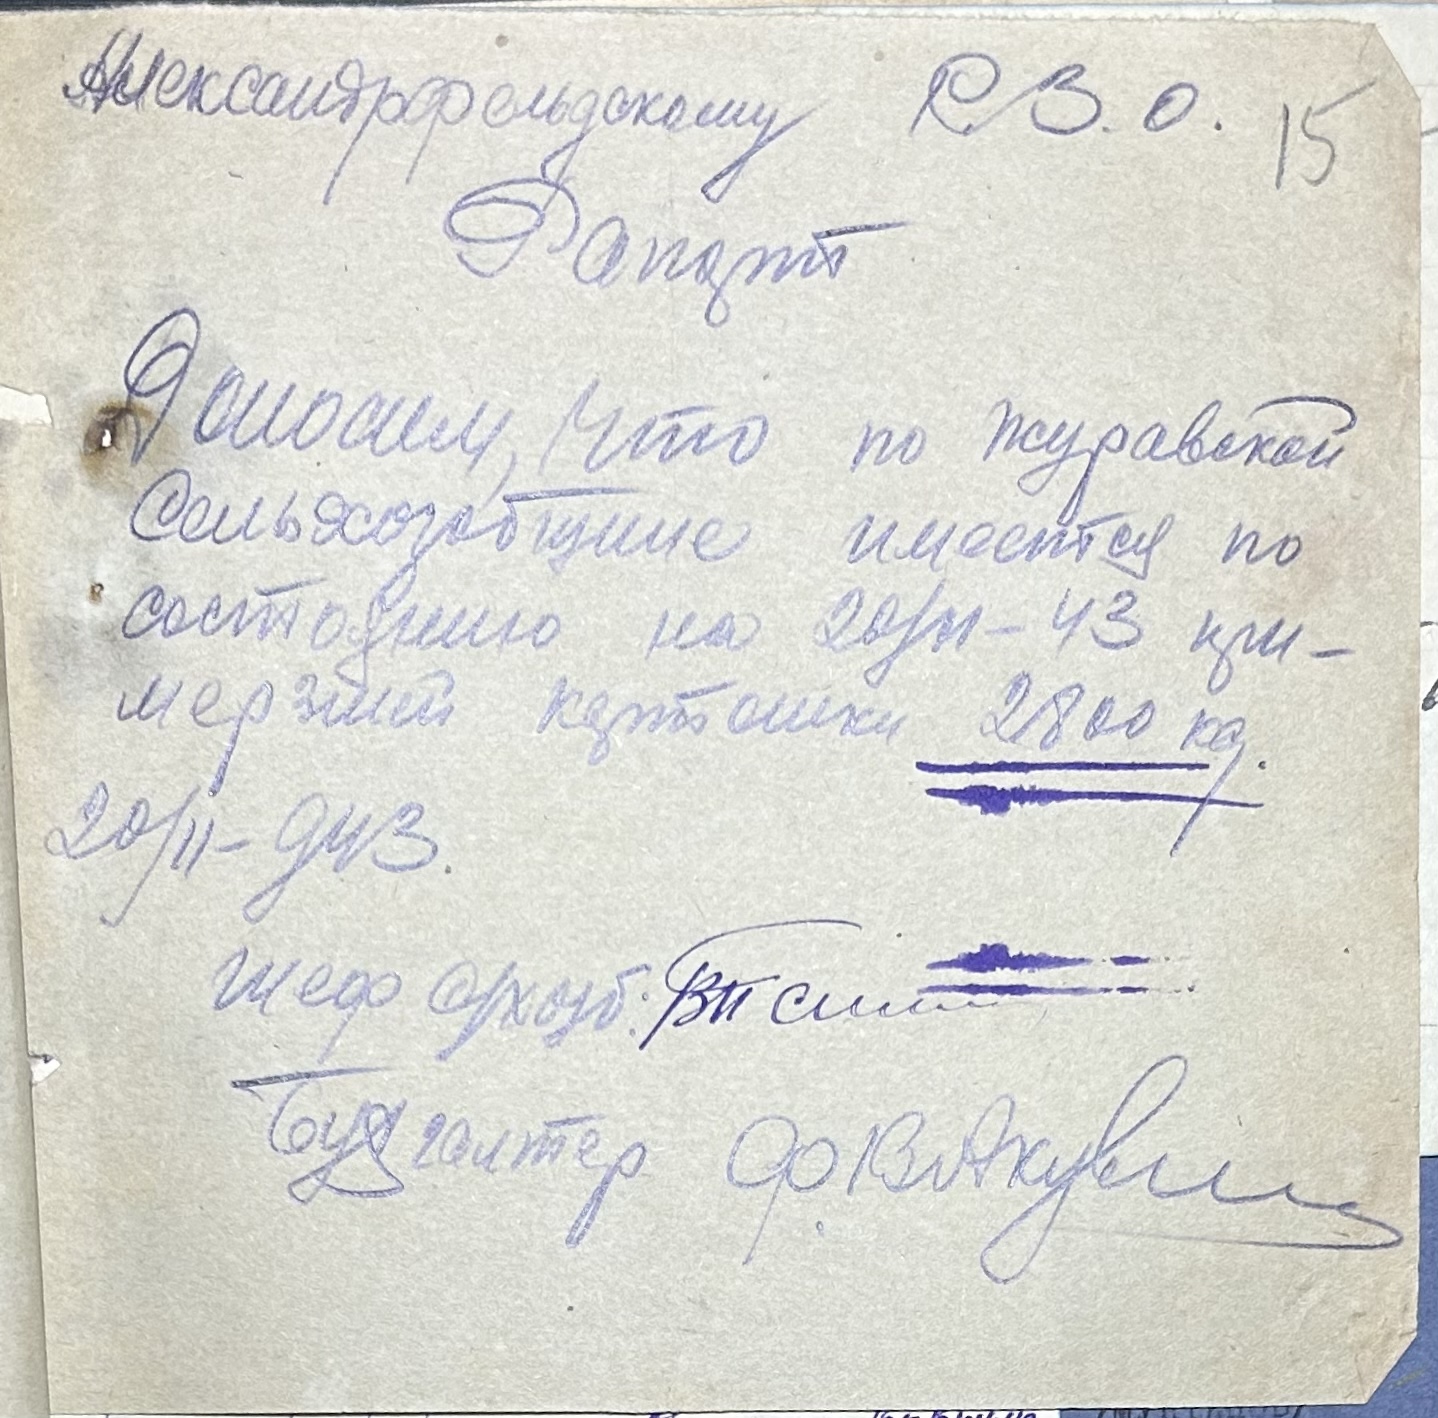 Александрфельдскому Р.З.О. 15
Рапорт
Доносим, что по Журавской
Сельхозобщине имеется по
состоянию на 20/II-43 при-
мерзшей картошки 2800 кг.
20/II-943.
Шеф с/хозоб.:
Бухгалтер